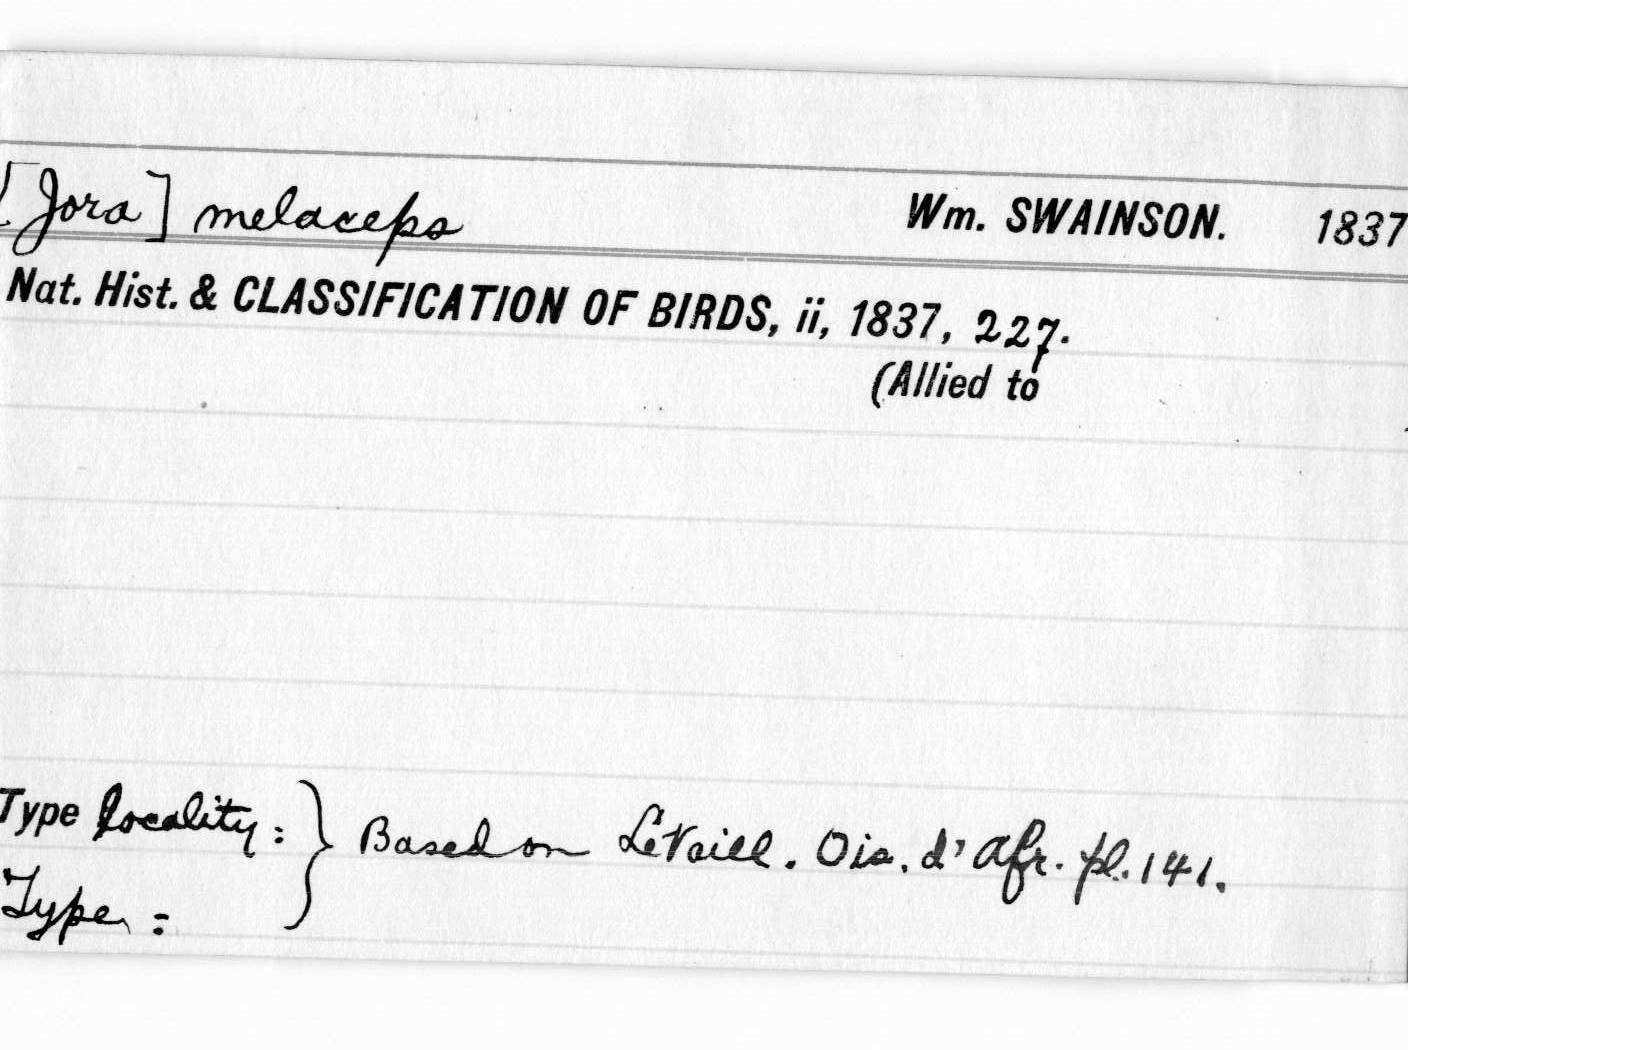 [Jora] melaceps Wm. SWAINSON. 1837
Nat. Hist. & CLASSIFICATION OF BIRDS, ii, 1837, 227.
(Allied to
Type locality: } Based on LeVaill. Ois. d' Afr. pl. 141.
Type :